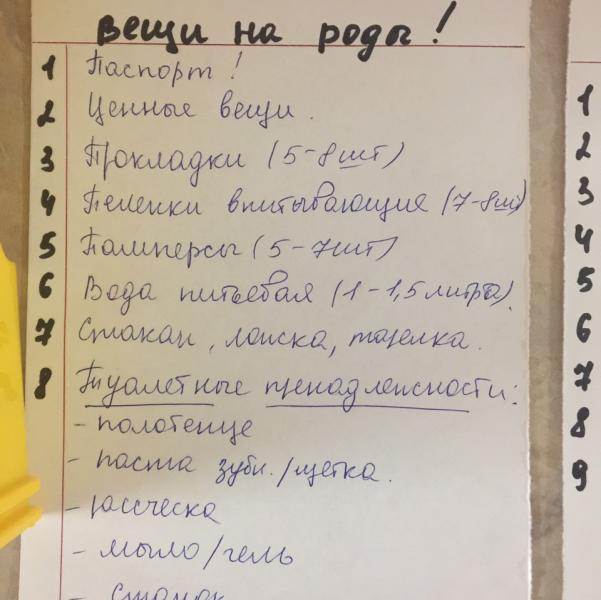 вещи на роды!
1 Паспорт!
2 Ценные вещи.
3 Прокладки (5-8шт)
4 Пеленки впитывающие (7-8шт)
5 Памперсы (5-7шт)
6 Вода питьевая (1-1,5 литра).
7 Стакан, ложка, тарелка.
8 Туалетные пренадлежности:
- полотенце
- паста зубн./щетка.
- рассческа
- мыло/гель
- станок
1
2
3
4
5
6
7
8
9